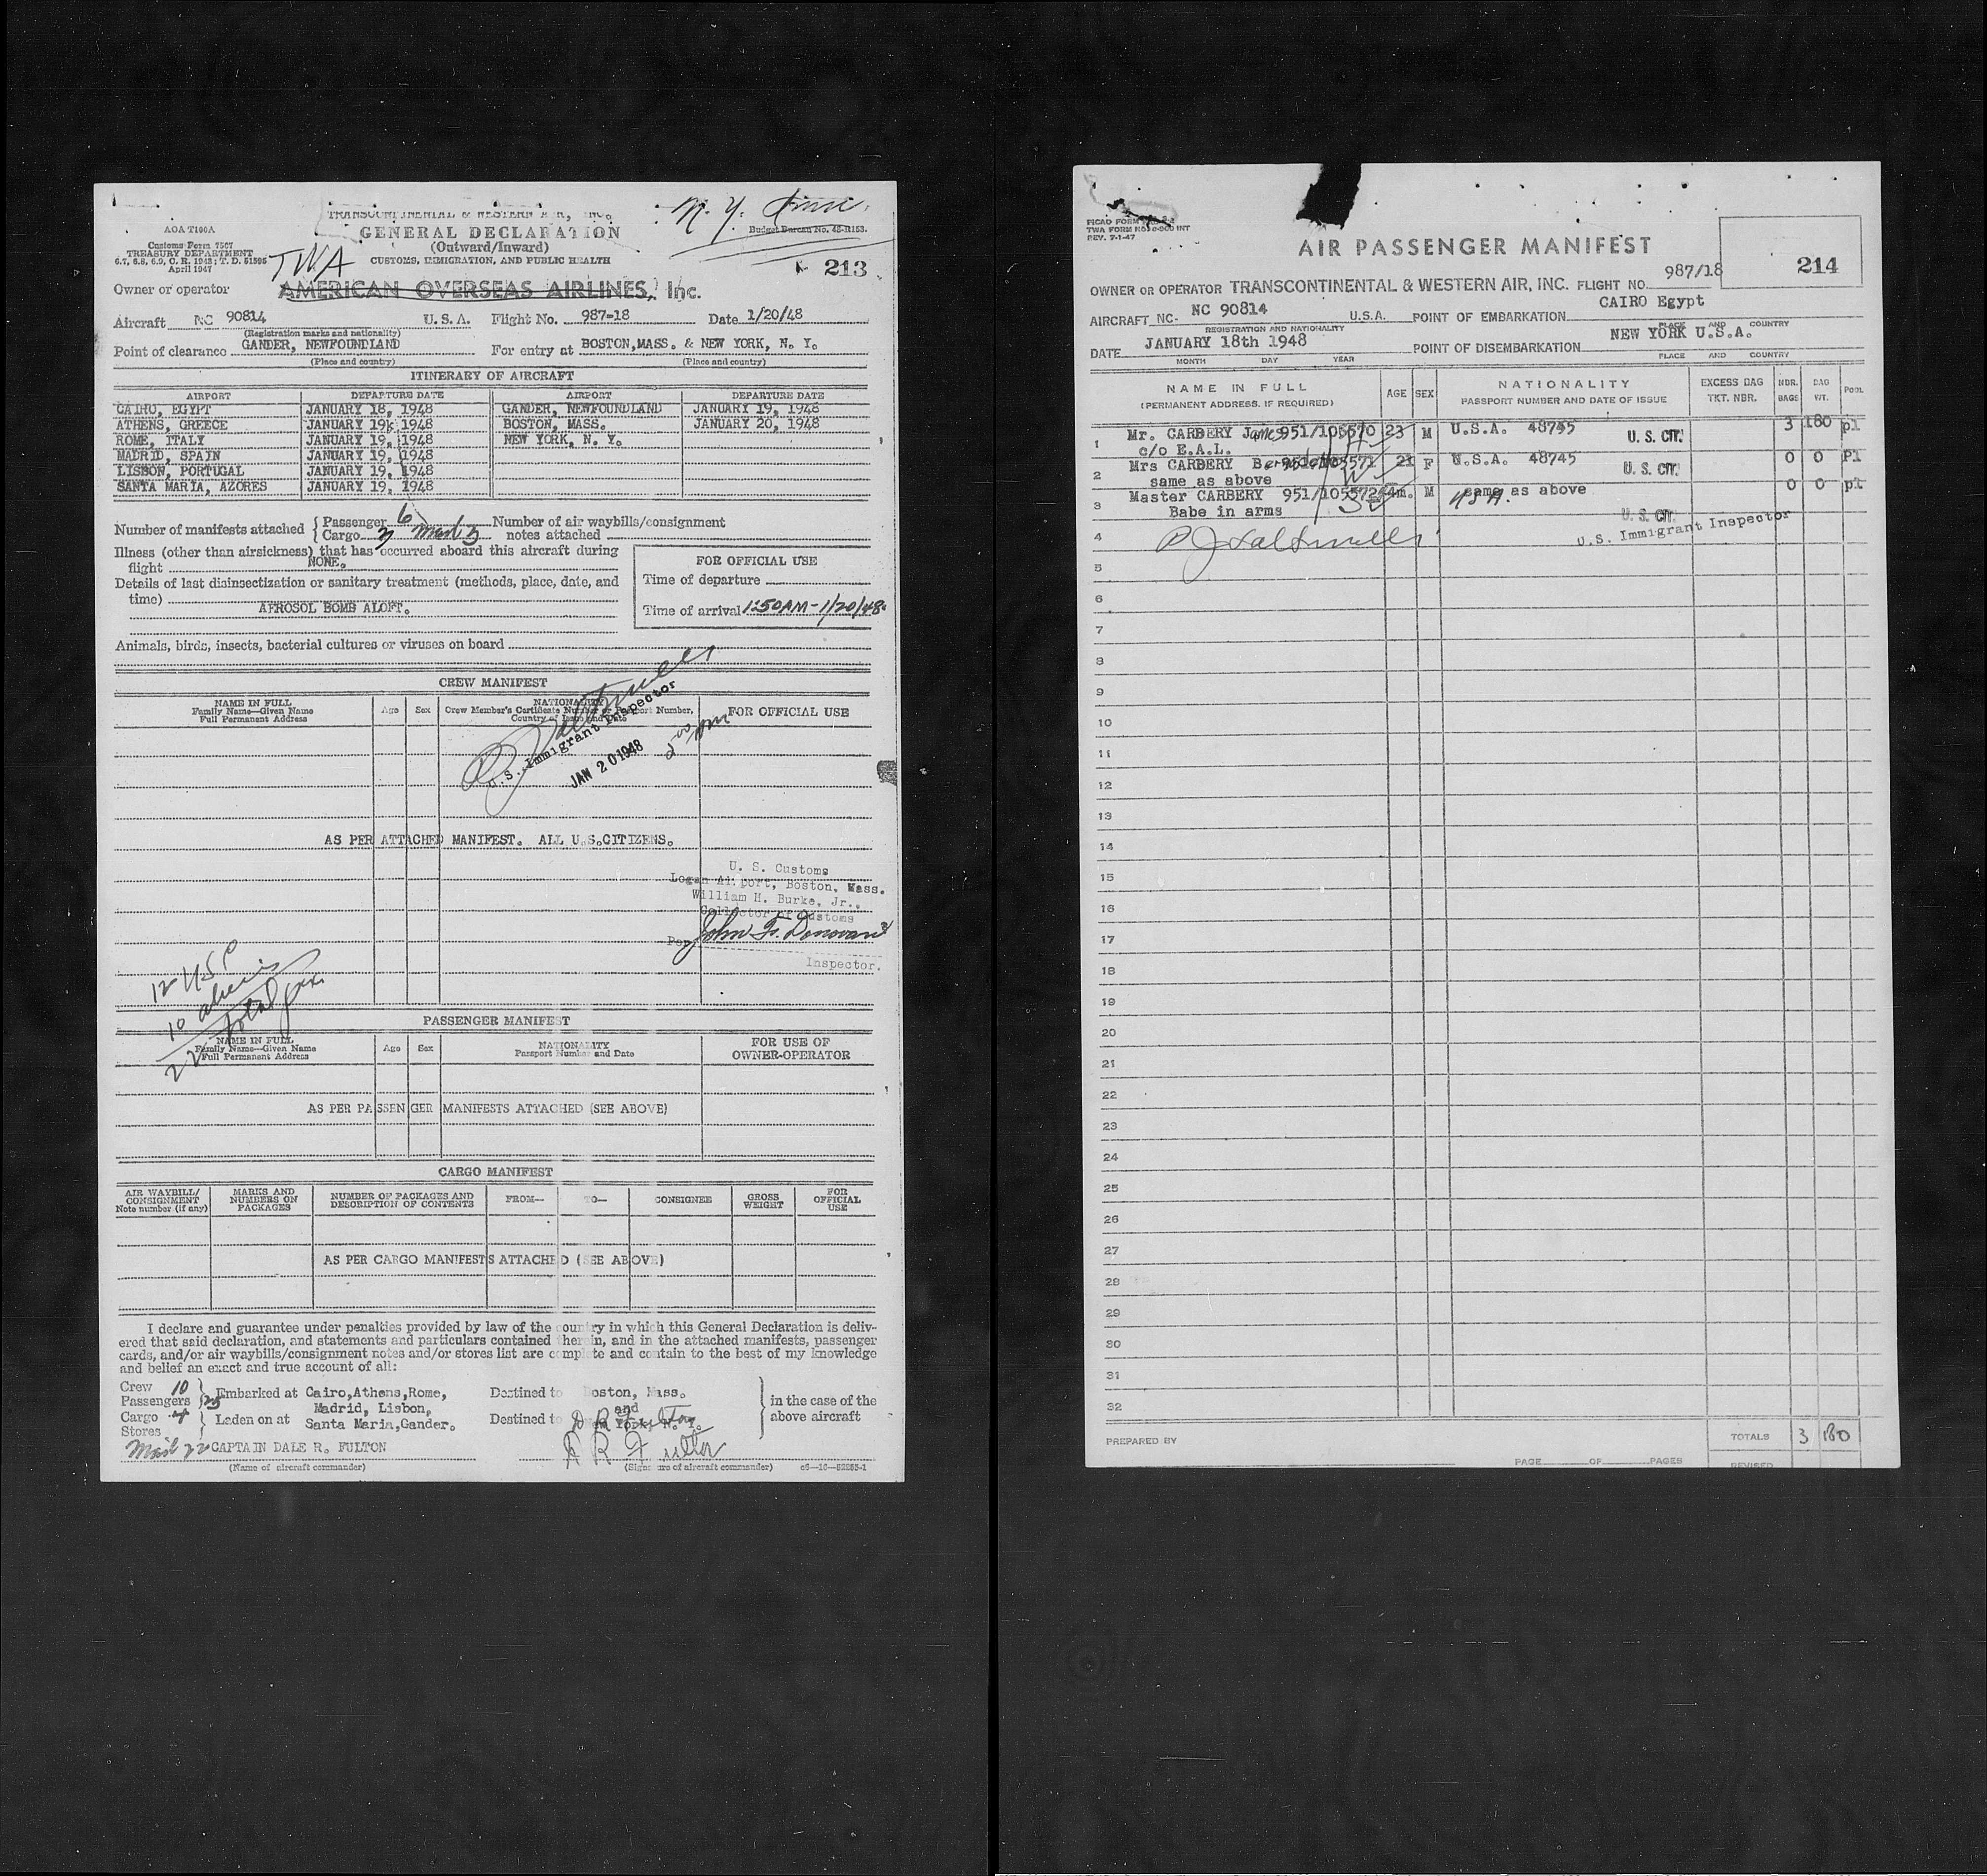 TRANSCONTINENTAL & WESTERN AIR, INC.
N. Y. Time
AOA T100A
GENERAL DECLARATION
Budget Bureau No. 48-R153.
(Outward/Inward)
Customs Form 7507
TREASURY DEPARTMENT
6.7, 6.8, 6.9, C. R. 1943; T. D. 51595
April 1947
TWA
CUSTOMS, IMMIGRATION, AND PUBLIC HEALTH
213
Owner or operator AMERICAN OVERSEAS AIRLINES, Inc.
Aircraft NC 90814 U. S. A. Flight No. 987-18 Date 1/20/48
(Registration marks and nationality)
Point of clearance GANDER, NEWFOUNDLAND For entry at BOSTON,MASS. & NEW YORK, N. Y.
(Place and country) (Place and country)
ITINERARY OF AIRCRAFT
AIRPORT DEPARTURE DATE AIRPORT DEPARTURE DATE
CAIRO, EGYPT JANUARY 18, 1948 GANDER, NEWFOUNDLAND JANUARY 19, 1948
ATHENS, GREECE JANUARY 19, 1948 BOSTON, MASS. JANUARY 20, 1948
ROME, ITALY JANUARY 19, 1948 NEW YORK, N. Y.
MADRID, SPAIN JANUARY 19, 1948
LISBON, PORTUGAL JANUARY 19, 1948
SANTA MARIA, AZORES JANUARY 19, 1948
Number of manifests attached Passenger 6 Number of air waybills/consignment
Cargo 3 Mail 3 notes attached
Illness (other than airsickness) that has occurred aboard this aircraft during
flight NONE.
FOR OFFICIAL USE
Time of departure
Details of last disinsectization or sanitary treatment (methods, place, date, and
time) AEROSOL BOMB ALOFT.
Time of arrival 1:50AM-1/20/48
Animals, birds, insects, bacterial cultures or viruses on board
CREW MANIFEST
NAME IN FULL
Family Name—Given Name
Full Permanent Address
Age Sex
NATIONALITY
Crew Member's Certificate Number or Passport Number,
Country of Issue and Date
FOR OFFICIAL USE
U.S. Immigrant Inspector
JAN 20 1948
AS PER ATTACHED MANIFEST. ALL U.S.CITIZENS.
U. S. Customs
Logan Airport, Boston, Mass.
William H. Burke, Jr.,
Collector of Customs
Per John F. Donovan
Inspector.
12 USC
10 aliens
22 total pax.
PASSENGER MANIFEST
NAME IN FULL
Family Name—Given Name
Full Permanent Address
Age Sex
NATIONALITY
Passport Number and Date
FOR USE OF
OWNER-OPERATOR
AS PER PASSENGER MANIFESTS ATTACHED (SEE ABOVE)
CARGO MANIFEST
AIR WAYBILL/
CONSIGNMENT
Note number (if any)
MARKS AND
NUMBERS ON
PACKAGES
NUMBER OF PACKAGES AND
DESCRIPTION OF CONTENTS
FROM— TO— CONSIGNEE
GROSS
WEIGHT
FOR
OFFICIAL
USE
AS PER CARGO MANIFESTS ATTACHED (SEE ABOVE)
I declare and guarantee under penalties provided by law of the country in which this General Declaration is deliv-
ered that said declaration, and statements and particulars contained therein, and in the attached manifests, passenger
cards, and/or air waybills/consignment notes and/or stores list are complete and contain to the best of my knowledge
and belief an exact and true account of all:
Crew 10
Passengers Embarked at Cairo,Athens,Rome, Destined to Boston, Mass.
Madrid, Lisbon, and
Cargo Laden on at Santa Maria,Gander. Destined to New York, N. Y.
Stores
in the case of the
above aircraft
Mail 22 CAPTAIN DALE R. FULTON D R Fulton
(Name of aircraft commander) (Signature of aircraft commander)
TWA FORM NO.
REV. 7-1-47
AIR PASSENGER MANIFEST
214
OWNER OR OPERATOR TRANSCONTINENTAL & WESTERN AIR, INC. FLIGHT NO. 987/18
AIRCRAFT NC- NC 90814 U.S.A. POINT OF EMBARKATION CAIRO Egypt
REGISTRATION AND NATIONALITY PLACE AND COUNTRY
DATE JANUARY 18th 1948 POINT OF DISEMBARKATION NEW YORK U.S.A.
MONTH DAY YEAR PLACE AND COUNTRY
NAME IN FULL
(PERMANENT ADDRESS, IF REQUIRED)
AGE SEX
NATIONALITY
PASSPORT NUMBER AND DATE OF ISSUE
EXCESS BAG
TKT. NBR.
NBR.
BAGS
BAG
WT.
POOL
1 Mr. CARBERY James 951/105570 23 M U.S.A. 48745 U. S. CIT. 3 180 pl
c/o E.A.L.
2 Mrs CARBERY Bernadette 951/105571 21 F U.S.A. 48745 U. S. CIT. 0 0 Pl
same as above
3 Master CARBERY 951/105572 4m. M same as above USA. 0 0 pl
Babe in arms U. S. CIT.
4 U.S. Immigrant Inspector
5
6
7
8
9
10
11
12
13
14
15
16
17
18
19
20
21
22
23
24
25
26
27
28
29
30
31
32
PREPARED BY TOTALS 3 180
PAGE OF PAGES REVISED